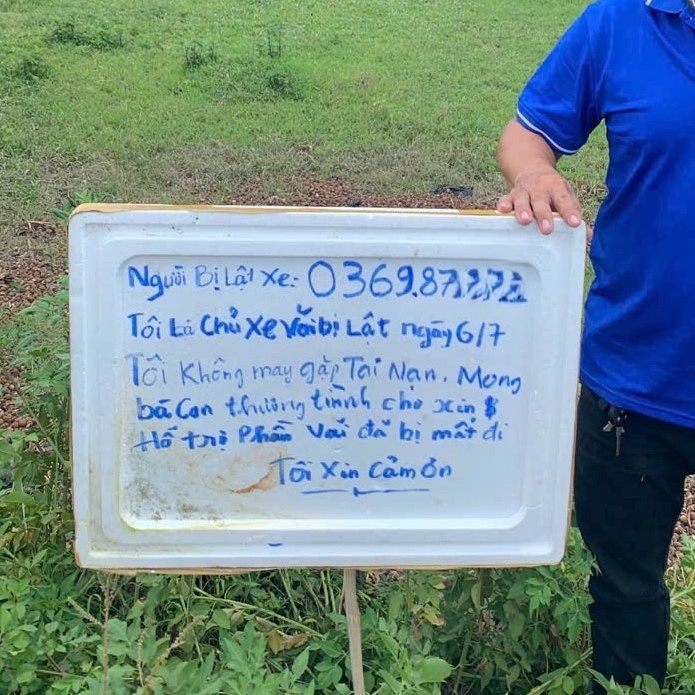 Người Bị Lật Xe: 0369.87
Tôi Là Chủ Xe Vải bị Lật ngày 6/7
Tôi Không may gặp Tai Nạn. Mong
bà Con thương tình cho xin $
Hỗ trợ Phần Vải đã bị mất đi
Tôi Xin Cảm ơn